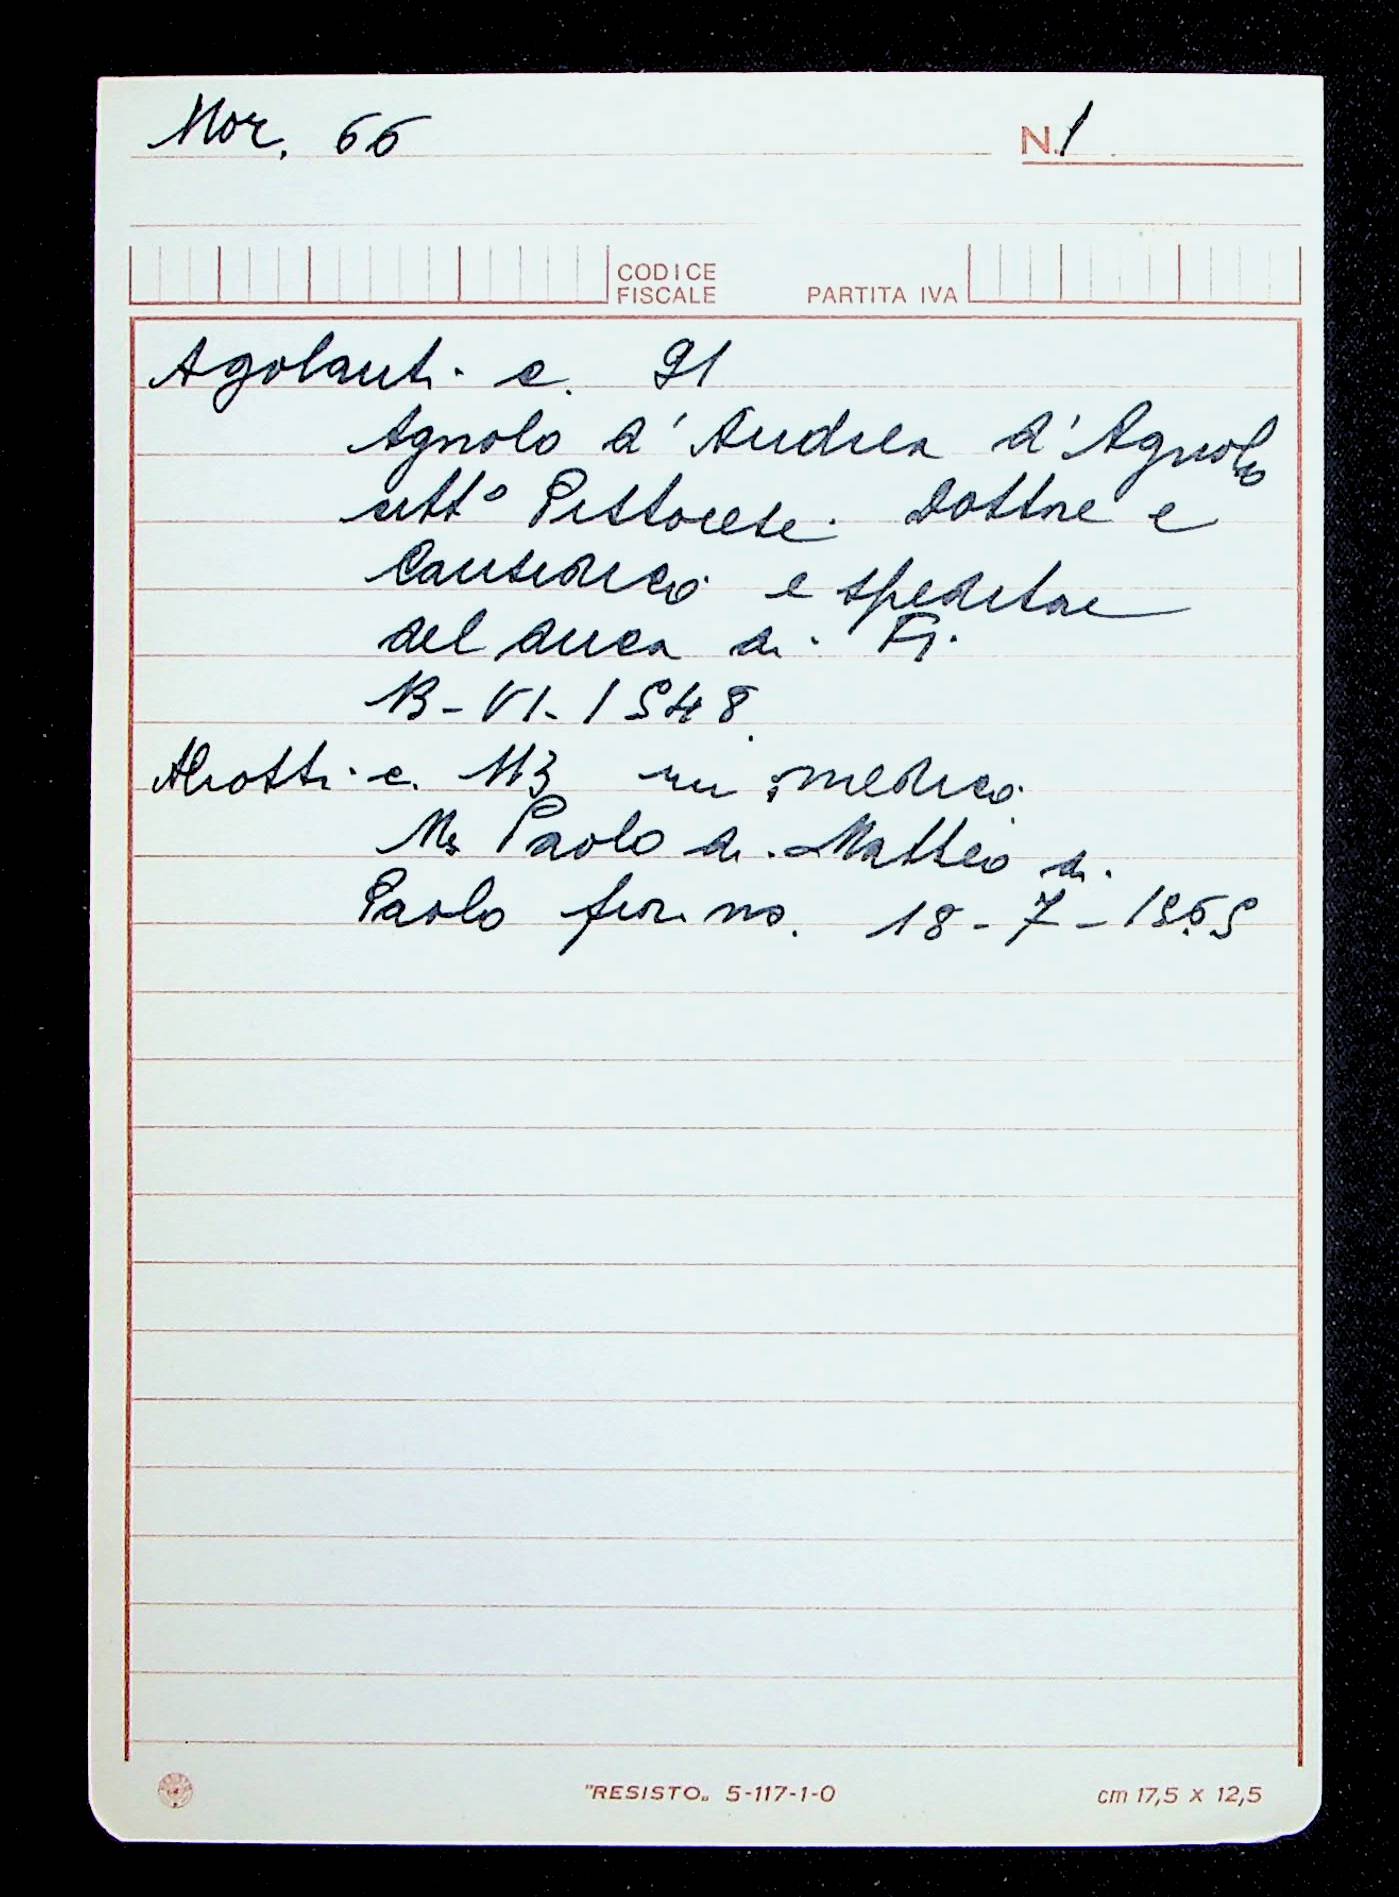 Mor. 66
N. 1
CODICE
FISCALE
PARTITA IVA
Agolanti c. 91
Agnolo d'Andrea d'Agnolo
citt° Pistorese. Dottore e
Causidico e speditore
del duca di Fi.
13-VI-1548
Aliotti c. 113 un medico
Ms Paolo di Matteo di
Paolo fior.no. 18-7-1565
"RESISTO„ 5-117-1-0
cm 17,5 x 12,5